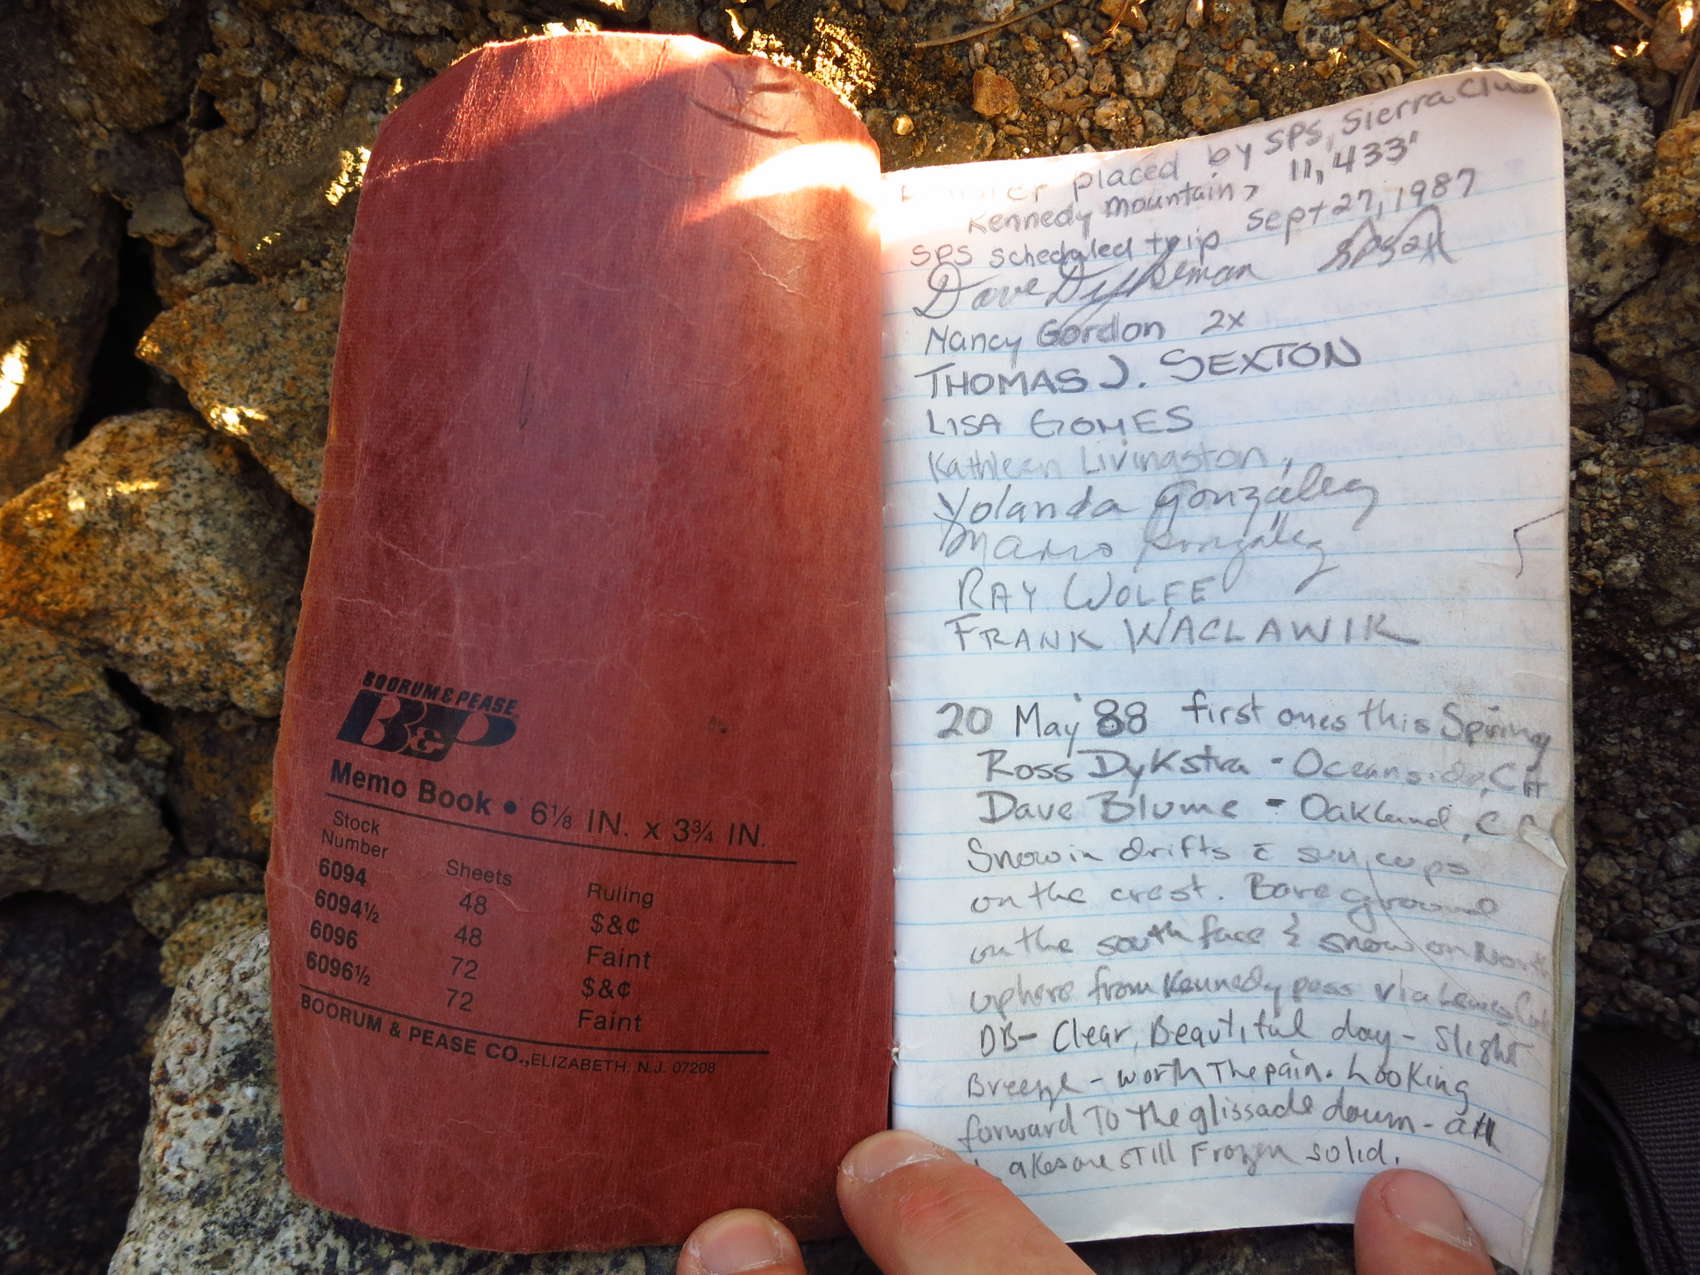 BOORUM & PEASE
B&P
Memo Book • 6⅛ IN. x 3¾ IN.
Stock Number Sheets Ruling
6094 48 $&¢
6094½ 48 Faint
6096 72 $&¢
6096½ 72 Faint
BOORUM & PEASE CO., ELIZABETH, N.J. 07208
placed by SPS, Sierra Club
Kennedy Mountain, 11,433'
SPS scheduled trip Sept 27, 1987
Dave Dykeman
Nancy Gordon 2x
THOMAS J. SEXTON
LISA GOMES
Kathleen Livingston,
Yolanda González
Mario González
RAY WOLFE
FRANK WACLAWIK
20 May '88 first ones this Spring
Ross Dykstra - Oceanside, CA
Dave Blume - Oakland, CA
Snow in drifts c̄ sun cups
on the crest. Bare ground
on the south face & snow on North
up here from Kennedy pass via
DB- Clear, Beautiful day - Slight
Breeze - worth The pain. Looking
forward To The glissade down - all
Lakes are still Frozen solid.